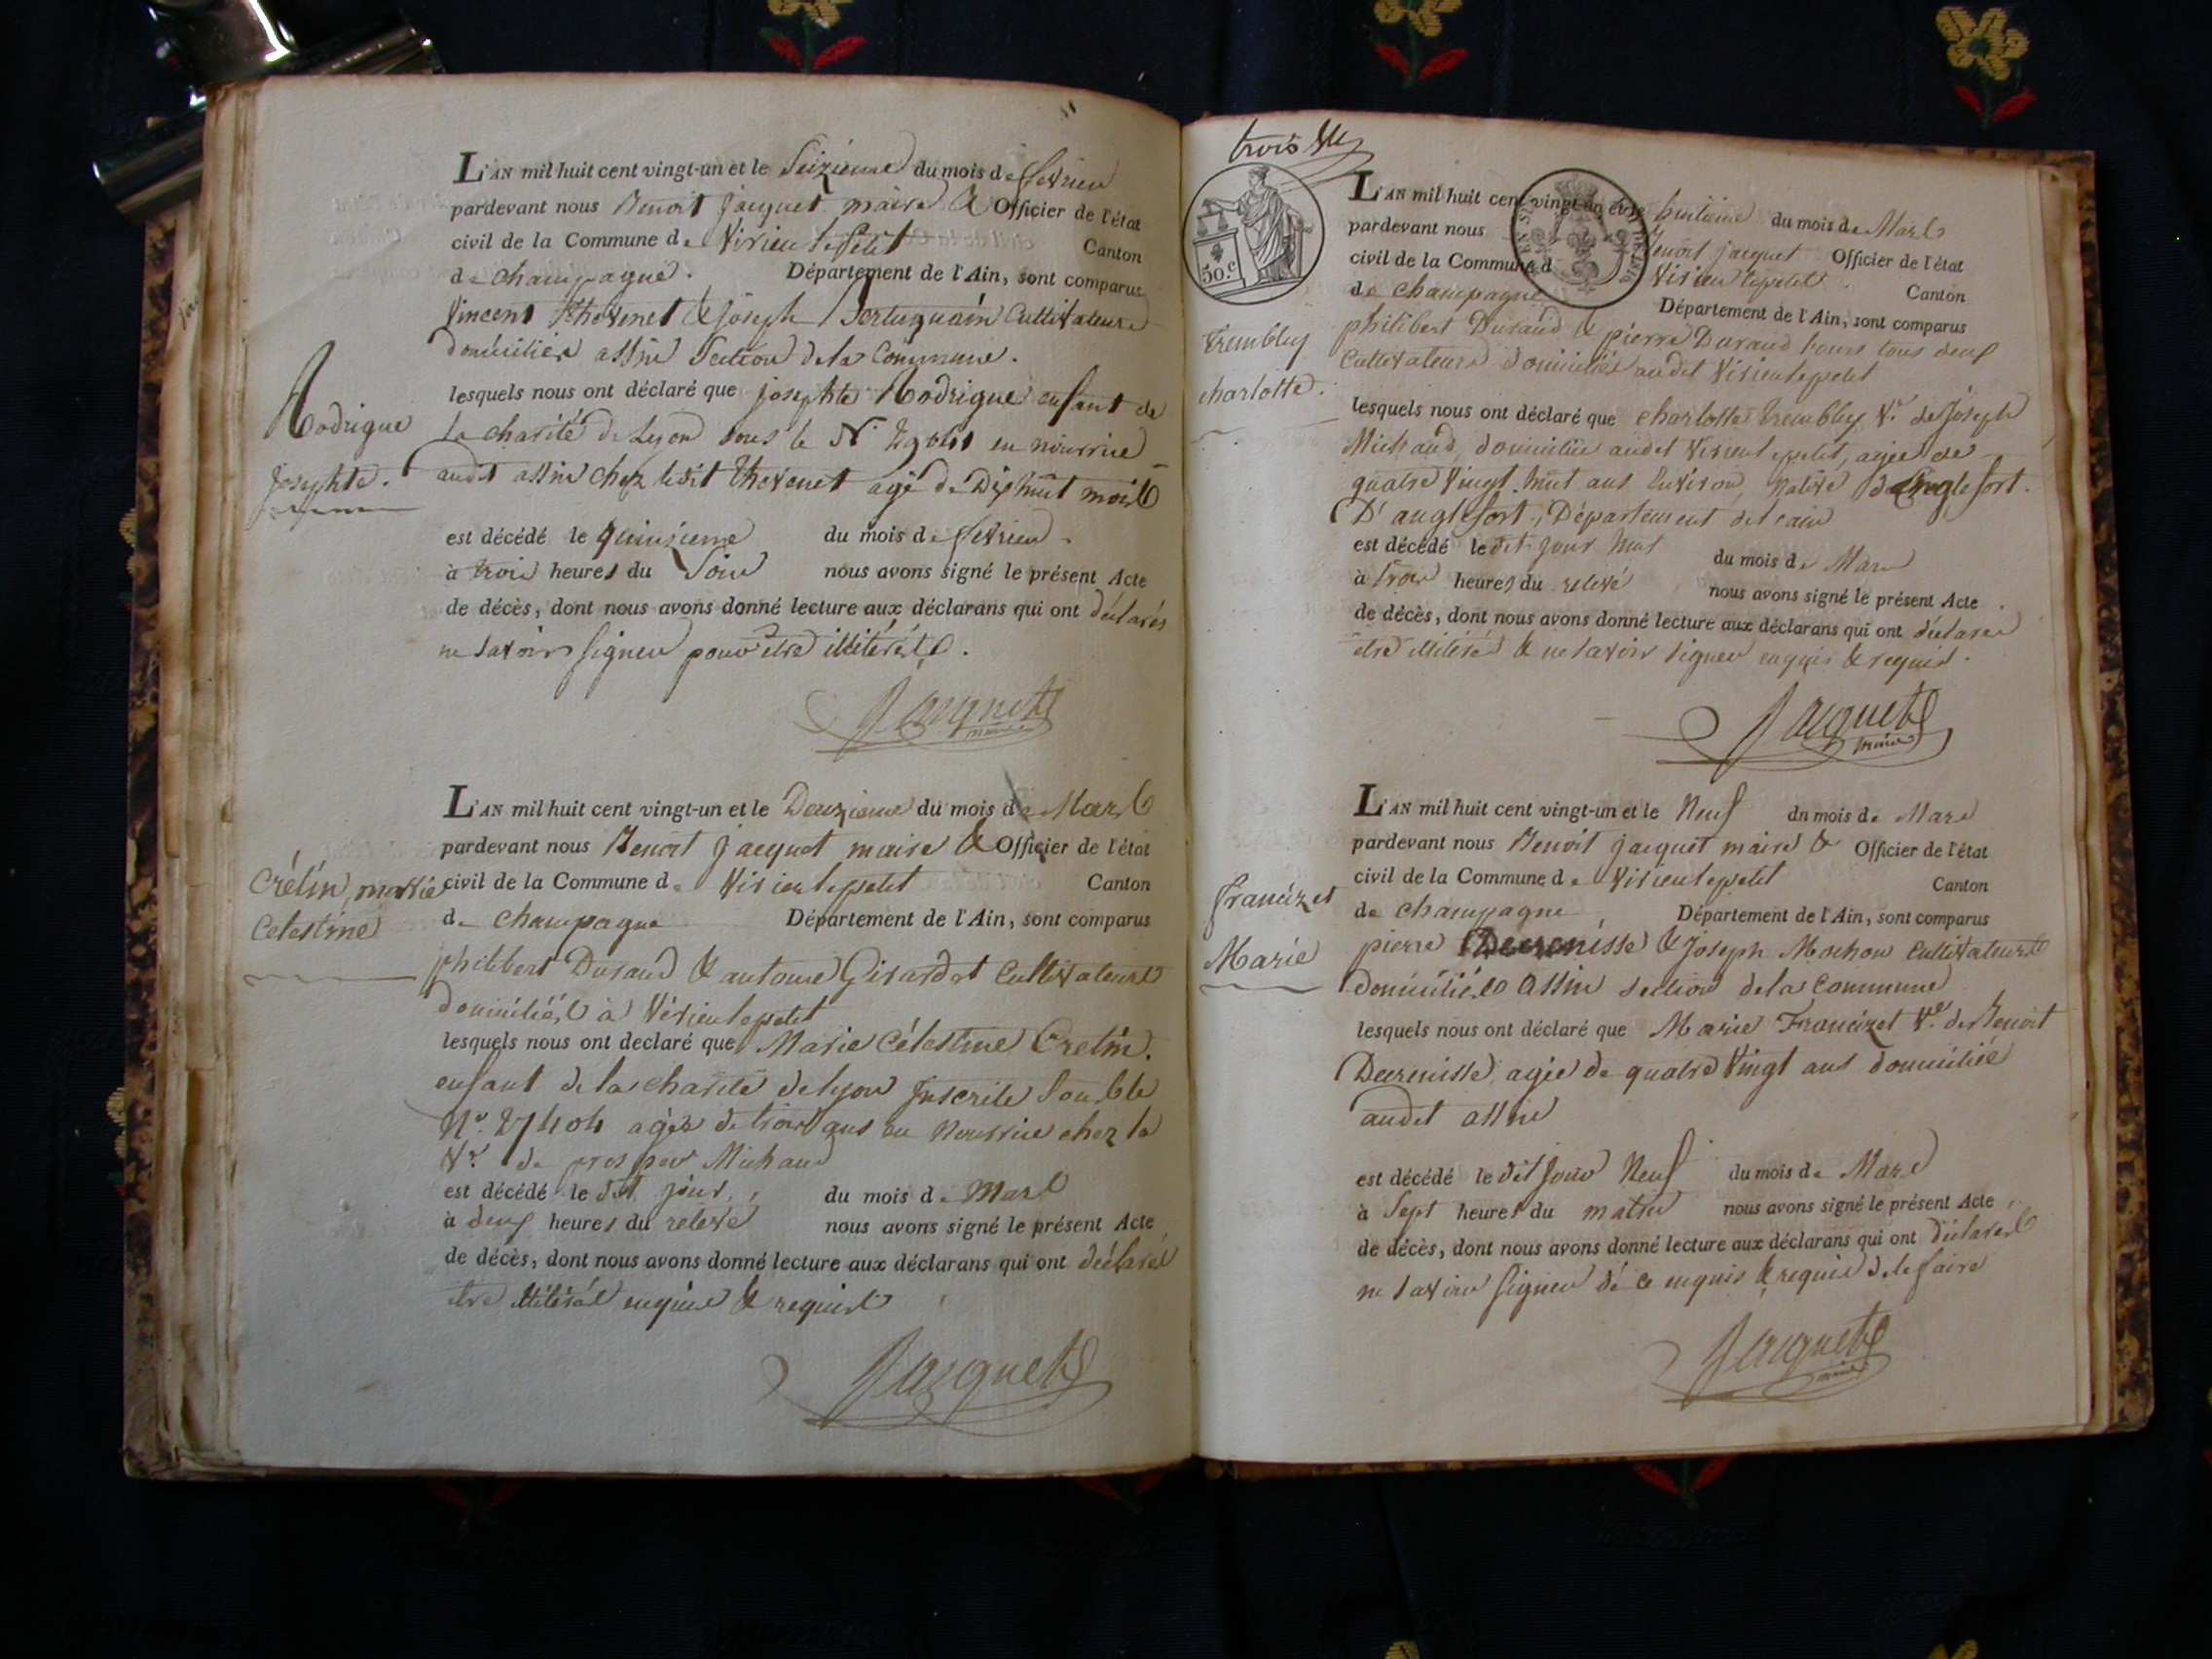 L'AN mil huit cent vingt-un et le Seizieme du mois de fevrier
pardevant nous Benoit jacquet maire & Officier de l'état
civil de la Commune de Virieu le petit Canton
de champagne. Département de l'Ain, sont comparus
Vincent thevenet & joseph Cultivateurs
domiciliés assin Section de la Commune.
lesquels nous ont déclaré que josephte Rodrigue enfant de
la charité de Lyon sous le N° en nourrice
audit assin chez ledit thevenet agé de Dixhuit mois
est décédé le quinzieme du mois de fevrier
à trois heures du Soir nous avons signé le présent Acte
de décès, dont nous avons donné lecture aux déclarans qui ont déclarés
ne savoir signer pour être illitérés.
Jacquet
maire
Rodrigue
josephte.
L'AN mil huit cent vingt-un et le Deuzieme du mois de Mars
pardevant nous Benoit jacquet maire & Officier de l'état
civil de la Commune de Virieu le petit Canton
de champagne Département de l'Ain, sont comparus
philibert Durand & antoine Girardot Cultivateurs
domiciliés à Virieu le petit
lesquels nous ont declaré que Marie Célestine Cretin.
enfant de la charité de lyon Inscrite Sous le
N° 27404 agée de trois ans en Nourrice chez la
Ve de prosper Michaud
est décédé le dit jour, du mois de Mars
à deux heures du relevé nous avons signé le présent Acte
de décès, dont nous avons donné lecture aux déclarans qui ont déclarés
etre illitérés enquis & requis
Jacquet
Crétin, marie
Celestine
trois
30.c
L'AN mil huit cent vingt-un et le huitieme du mois de Mars
pardevant nous Benoit jacquet Officier de l'état
civil de la Commune d Virieu le petit Canton
de champagne Département de l'Ain, sont comparus
philibert Durand & pierre Durand tous deux
Cultivateurs domiciliés audit Virieu le petit
lesquels nous ont déclaré que charlotte trembley Ve de joseph
Michaud, domiciliée audit Virieu le petit, agée de
quatre Vingt huit ans Environ, Native d'anglefort.
D'anglefort, Département de l'ain
est décédé le dit jour huit du mois de Mars
à trois heures du relevé nous avons signé le présent Acte
de décès, dont nous avons donné lecture aux déclarans qui ont déclarés
etre illitérés & ne savoir signer enquis & requis.
Jacquet
maire
trembley
charlotte.
L'AN mil huit cent vingt-un et le Neuf du mois de Mars
pardevant nous Benoit jacquet maire & Officier de l'état
civil de la Commune de Virieu le petit Canton
de champagne, Département de l'Ain, sont comparus
pierre Decrenisse & joseph Mochon Cultivateurs
Domiciliés assin section de la Commune
lesquels nous ont déclaré que Marie Francizet Ve de Benoit
Decrenisse, agée de quatre Vingt ans domiciliée
audit assin
est décédé le dit jour Neuf du mois de Mars
à Sept heures du matin nous avons signé le présent Acte
de décès, dont nous avons donné lecture aux déclarans qui ont déclarés
ne savoir signer de ce enquis & requis de le faire
Jacquet
maire
francizet
Marie